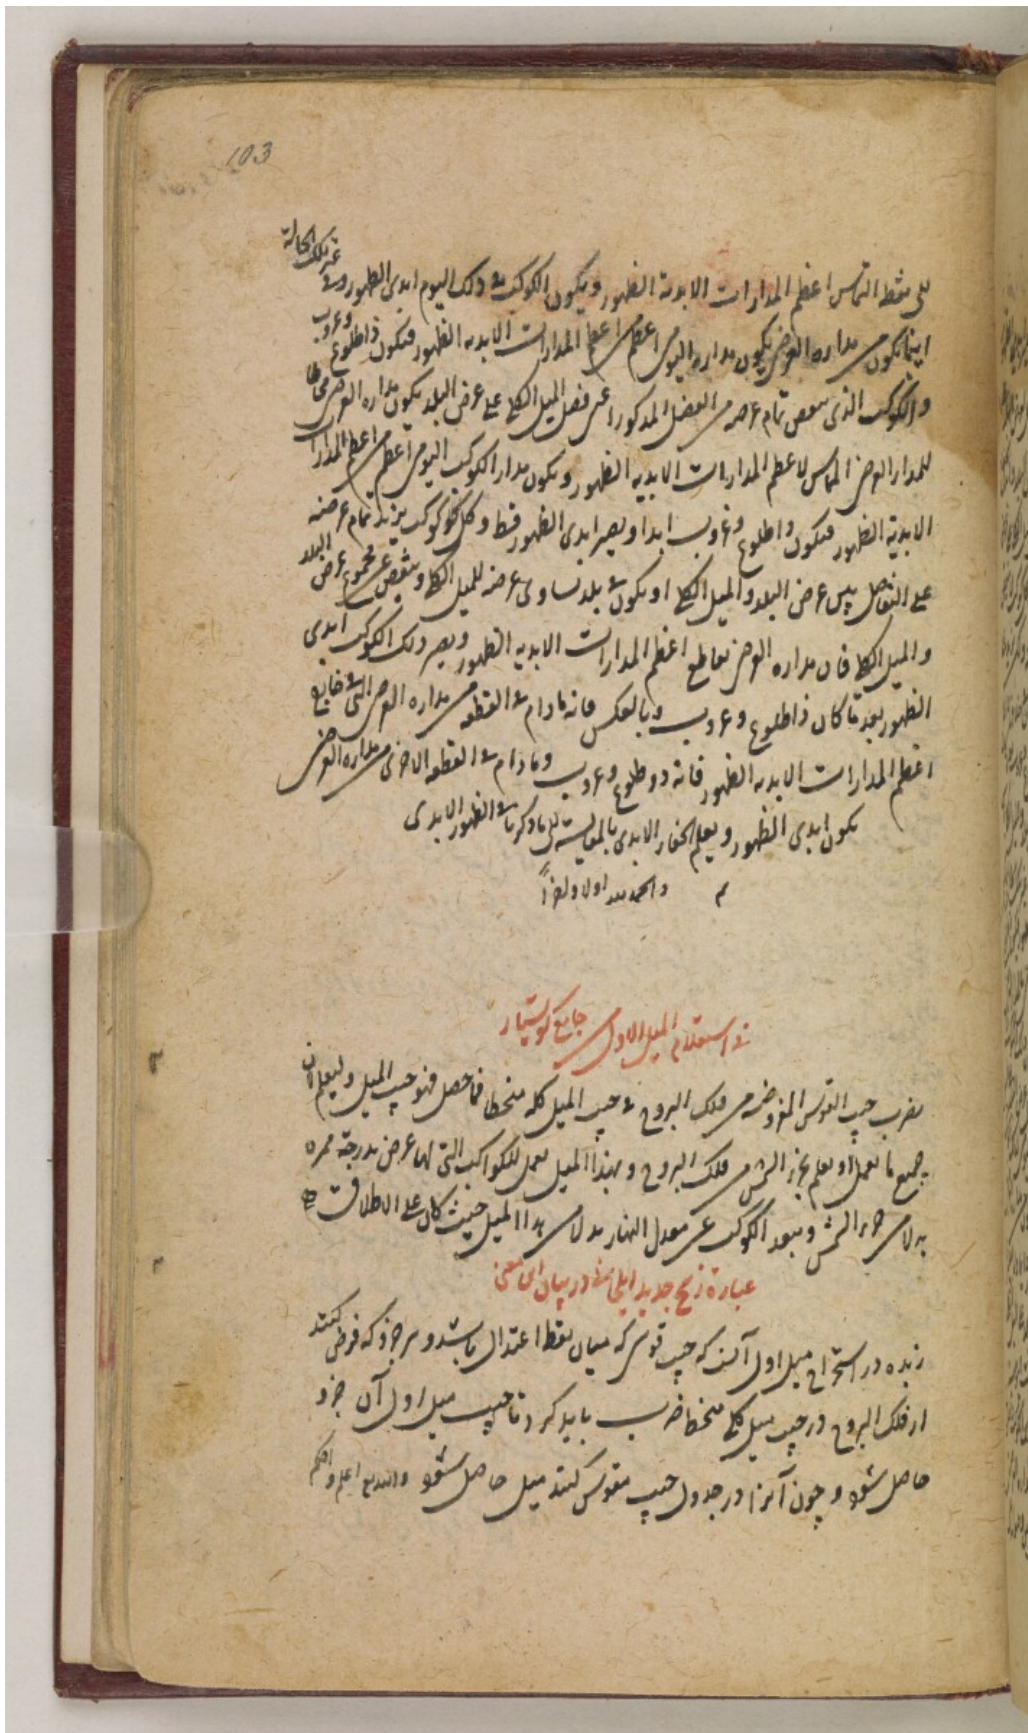 103
على نقطة التماس اعظم المدارات الابدية الظهور ويكون الكوكب في ذلك اليوم ابدي الظهور وفي غير تلك الحالة
اينما يكون من مداره العرضي يكون مداره اليومي اعظم من اعظم المدارات الابديه الظهور فيكون ذا طلوع وغروب
والكوكب الذي ينقص تمام عرضه من الفضل المذكور اعني فضل الميل الكلي على عرض البلد يكون مداره العرضي
للمدار العرضي المماس لاعظم المدارات الابديه الظهور ويكون مدار الكوكب اليومي اعظم من اعظم المدارات
الابدية الظهور فيكون ذا طلوع وغروب ابدا ويصير ابدي الظهور قط وكل كوكب يزيد تمام عرضه
على التفاضل بين عرض البلد والميل الكلي او يكون في بلد يساوي عرضه للميل الكلي وينقص عن مجموع عرض البلد
والميل الكلي فان مداره العرضي يقاطع اعظم المدارات الابديه الظهور ويصير ذلك الكوكب ابدي
الظهور بعد ما كان ذا طلوع وغروب وبالعكس فانه مادام في القطعه من مداره العرضي التي في خارج
اعظم المدارات الابديه الظهور فانه ذو طلوع وغروب ومادام في القطعه الاخرى من مداره العرضي
يكون ابدي الظهور ويعلم الخفاء الابدي بالمقايسة الى ما ذكرنا في الظهور الابدي
م والحمد لله اولا واخراً
في استعلام الميل الاول من جامع كوشيار
نضرب جيب القوس المفروضه من فلك البروج في جيب الميل كله منحطا فما حصل فهو جيب الميل وليعلم ان
جميع ما يعمل او يعلم بجزء الشمس من فلك البروج وبهذا الميل يعمل للكواكب التي لها عرض بدرجة ممره
بدلا من جزء الشمس وببعد الكوكب عن معدل النهار بدلا من هذا الميل حيث كان على الاطلاق
عبارة زيج جديد ايلخاني در بيان اين معنى
زبده در استخراج ميل اول آنست كه جيب قوسى كه ميان نقطه اعتدال باشد و هر جزو كه فرض كنند
از فلك البروج در جيب ميل كلى منحطا ضرب بايد كرد تا جيب ميل اول آن جزو
حاصل شود و چون آنرا در جدول جيب مقوس كنند ميل حاصل شود والله اعلم واحكم